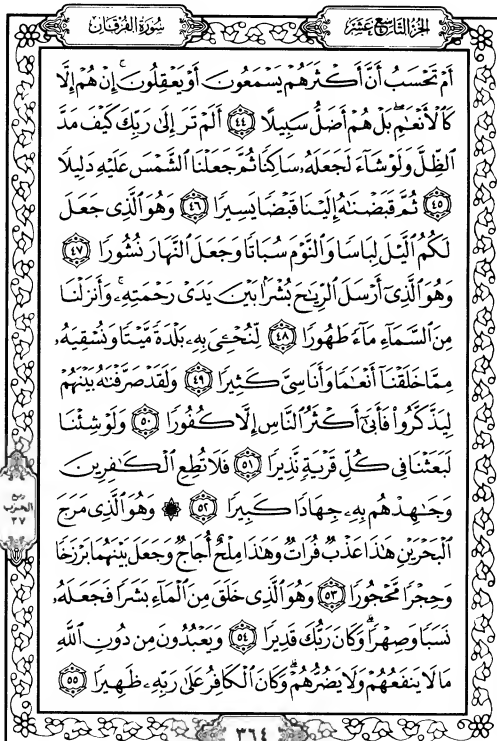 الجزء التاسع عشر
سورة الفرقان
أَمْ تَحْسَبُ أَنَّ أَكْثَرَهُمْ يَسْمَعُونَ أَوْ يَعْقِلُونَ ۚ إِنْ هُمْ إِلَّا
كَالْأَنْعَـٰمِ ۖ بَلْ هُمْ أَضَلُّ سَبِيلًا ٤٤ أَلَمْ تَرَ إِلَىٰ رَبِّكَ كَيْفَ مَدَّ
الظِّلَّ وَلَوْ شَآءَ لَجَعَلَهُۥ سَاكِنًا ثُمَّ جَعَلْنَا الشَّمْسَ عَلَيْهِ دَلِيلًا
٤٥ ثُمَّ قَبَضْنَـٰهُ إِلَيْنَا قَبْضًا يَسِيرًا ٤٦ وَهُوَ الَّذِى جَعَلَ
لَكُمُ الَّيْلَ لِبَاسًا وَالنَّوْمَ سُبَاتًا وَجَعَلَ النَّهَارَ نُشُورًا ٤٧
وَهُوَ الَّذِىٓ أَرْسَلَ الرِّيَـٰحَ بُشْرًۢا بَيْنَ يَدَىْ رَحْمَتِهِۦ ۚ وَأَنزَلْنَا
مِنَ السَّمَآءِ مَآءً طَهُورًا ٤٨ لِّنُحْـِۧىَ بِهِۦ بَلْدَةً مَّيْتًا وَنُسْقِيَهُۥ
مِمَّا خَلَقْنَآ أَنْعَـٰمًا وَأَنَاسِىَّ كَثِيرًا ٤٩ وَلَقَدْ صَرَّفْنَـٰهُ بَيْنَهُمْ
لِيَذَّكَّرُوا۟ فَأَبَىٰٓ أَكْثَرُ النَّاسِ إِلَّا كُفُورًا ٥٠ وَلَوْ شِئْنَا
لَبَعَثْنَا فِى كُلِّ قَرْيَةٍ نَّذِيرًا ٥١ فَلَا تُطِعِ الْكَـٰفِرِينَ
وَجَـٰهِدْهُم بِهِۦ جِهَادًا كَبِيرًا ٥٢ ۞ وَهُوَ الَّذِى مَرَجَ
الْبَحْرَيْنِ هَـٰذَا عَذْبٌ فُرَاتٌ وَهَـٰذَا مِلْحٌ أُجَاجٌ وَجَعَلَ بَيْنَهُمَا بَرْزَخًا
وَحِجْرًا مَّحْجُورًا ٥٣ وَهُوَ الَّذِى خَلَقَ مِنَ الْمَآءِ بَشَرًا فَجَعَلَهُۥ
نَسَبًا وَصِهْرًا ۗ وَكَانَ رَبُّكَ قَدِيرًا ٥٤ وَيَعْبُدُونَ مِن دُونِ اللَّهِ
مَا لَا يَنفَعُهُمْ وَلَا يَضُرُّهُمْ ۗ وَكَانَ الْكَافِرُ عَلَىٰ رَبِّهِۦ ظَهِيرًا ٥٥
ربع
الحزب
٣٧
٣٦٤